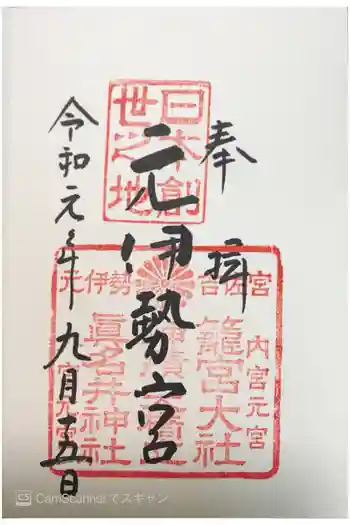 奉拝
日本創
世之地
元伊勢宮
元伊勢 吉佐宮
内宮元宮
籠宮大社
眞名井神社
令和元年九月十五日
CS CamScannerでスキャン